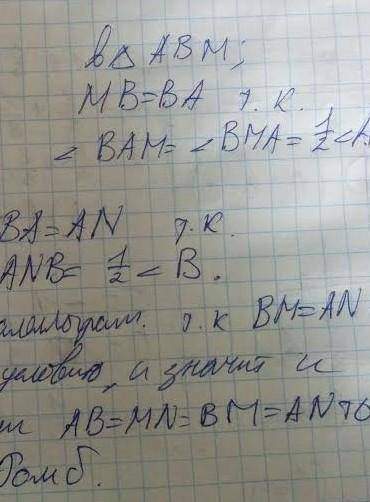 в △ ABM;
MB=BA т.к.
< BAM= < BMA= 1/2 <A
BA=AN т.к.
ANB= 1/2 < B.
т.к BM=AN
условию, и значит и
AB=MN=BM=AN то
Ромб.